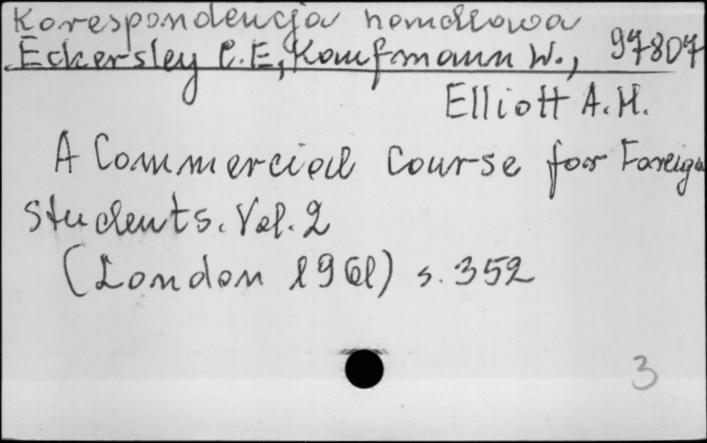 Korespondencja handlowa
Eckersley C.E., Kaufmann W., 97807
Elliott A.H.
A Commercial Course for Foreign
Students. Vol. 2
(London 1961) s. 352
3